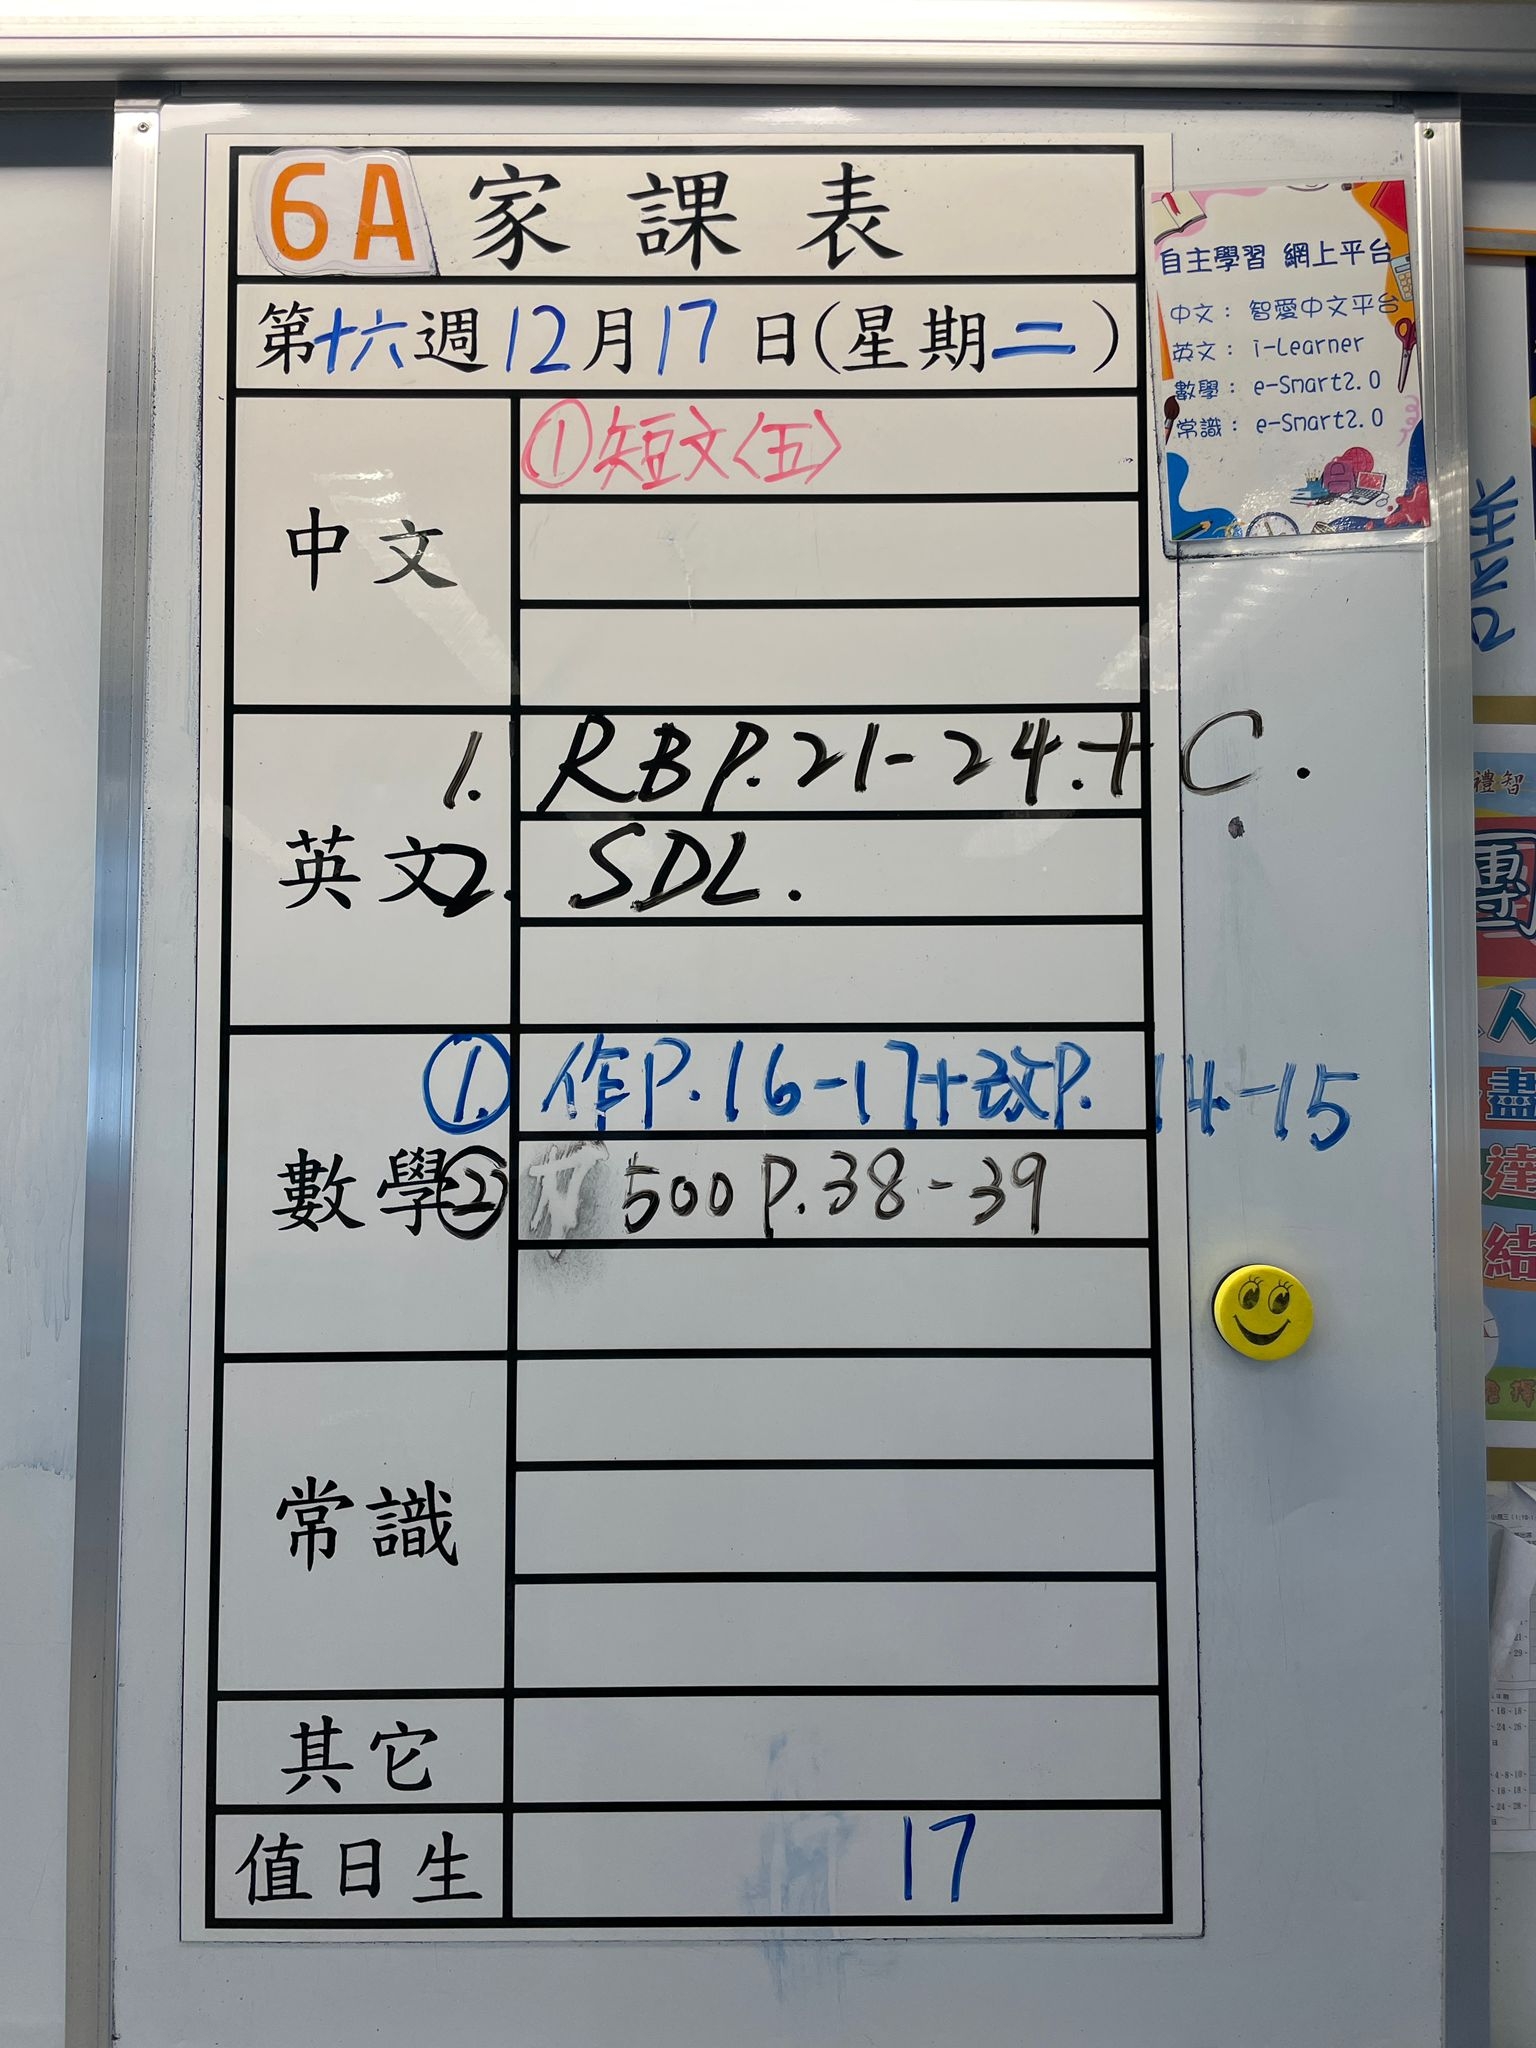 6A 家課表
第十六週12月17日(星期二)
中文
①短文〈五〉
英文
1. RB P.21-24.+ C.
2. SDL.
數學
① 作P.16-17+改P.14-15
② 500 P.38-39
常識
其它
值日生
17
自主學習 網上平台
中文： 智愛中文平台
英文： i-Learner
數學： e-Smart2.0
常識： e-Smart2.0
禮智
團
人
盡
達
結